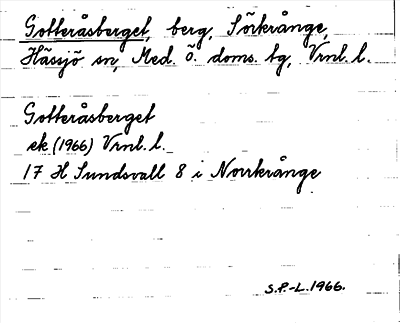 Gotteråsberget, berg, Sörkrånge,
Hässjö sn, Med. ö. doms. tg, Vrnl. l.
Gotteråsberget
ek (1966) Vrnl. l.
17 H Sundsvall 8 i Norrkrånge
S.P.-L. 1966.